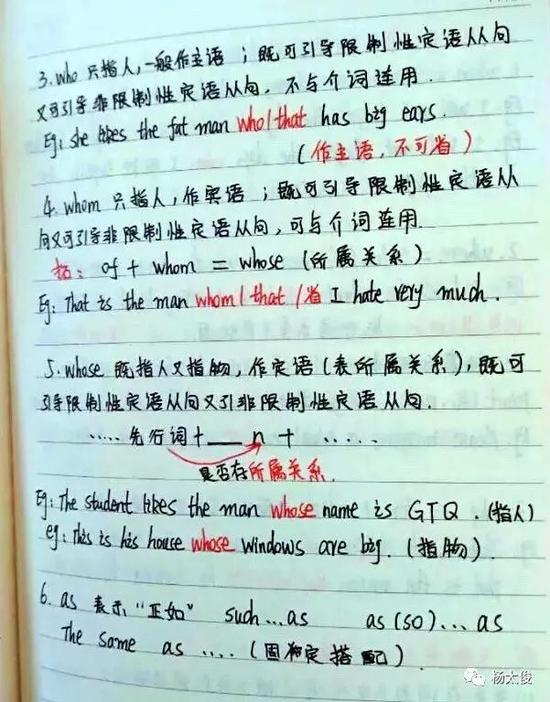 3. who 只指人,一般作主语 ; 既可引导限制性定语从句
又可引导非限制性定语从句, 不与介词连用.
Eg: she likes the fat man who/that has big ears.
(作主语,不可省)
4. whom 只指人,作宾语 ; 既可引导限制性定语从
句又可引导非限制性定语从句,可与介词连用.
拓: of + whom = whose (所属关系)
Eg: That is the man whom/that/省 I hate very much.
5. whose 既指人又指物,作定语(表所属关系),既可
引导限制性定语从句又引非限制性定语从句.
..... 先行词+___ n + .....
是否存所属关系.
Eg: The student likes the man whose name is GTQ. (指人)
eg: this is his house whose windows are big. (指物).
6. as 表示 "正如" such...as as (so)... as
The same as .... (固定搭配).
杨太俊